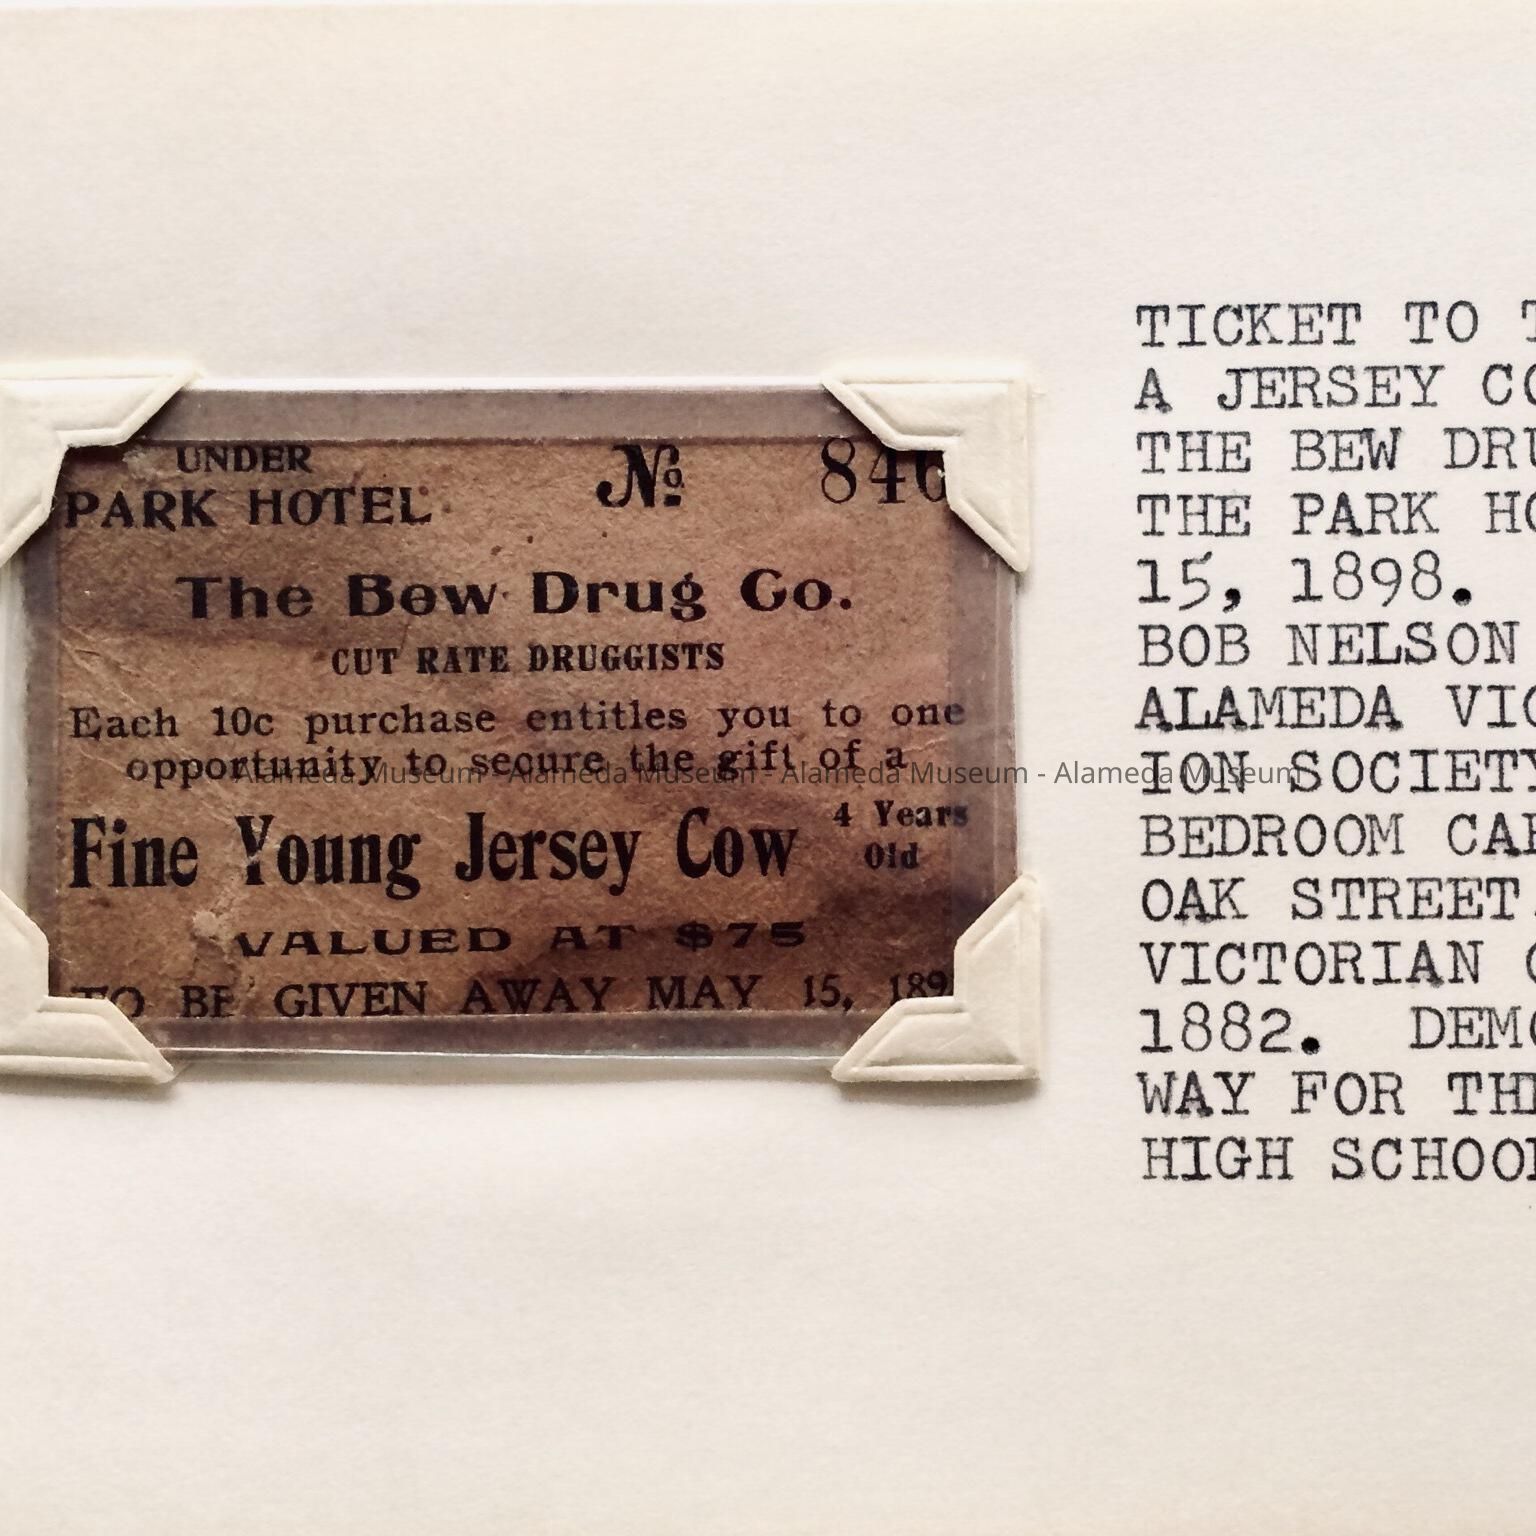 UNDER
PARK HOTEL
No 846
The Bew Drug Co.
CUT RATE DRUGGISTS
Each 10c purchase entitles you to one
opportunity to secure the gift of a
Fine Young Jersey Cow 4 Years Old
VALUED AT $75
TO BE GIVEN AWAY MAY 15, 189
Alameda Museum - Alameda Museum - Alameda Museum - Alameda Museum
TICKET TO T
A JERSEY CO
THE BEW DRU
THE PARK HO
15, 1898.
BOB NELSON
ALAMEDA VIC
ION SOCIETY
BEDROOM CAB
OAK STREET.
VICTORIAN
1882. DEMO
WAY FOR THE
HIGH SCHOOL